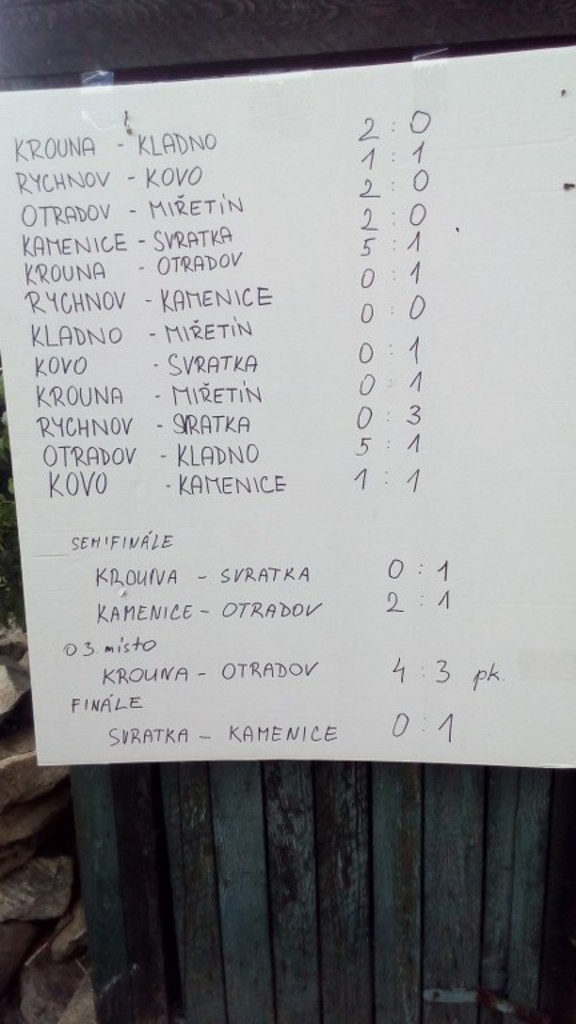 KROUNA - KLADNO 2 : 0
RYCHNOV - KOVO 1 : 1
OTRADOV - MIŘETÍN 2 : 0
KAMENICE - SVRATKA 2 : 0
KROUNA - OTRADOV 5 : 1
RYCHNOV - KAMENICE 0 : 1
KLADNO - MIŘETÍN 0 : 0
KOVO - SVRATKA 0 : 1
KROUNA - MIŘETÍN 0 : 1
RYCHNOV - SVRATKA 0 : 3
OTRADOV - KLADNO 5 : 1
KOVO - KAMENICE 1 : 1
SEMIFINÁLE
KROUNA - SVRATKA 0 : 1
KAMENICE - OTRADOV 2 : 1
O 3. místo
KROUNA - OTRADOV 4 : 3 pk.
FINÁLE
SVRATKA - KAMENICE 0 : 1